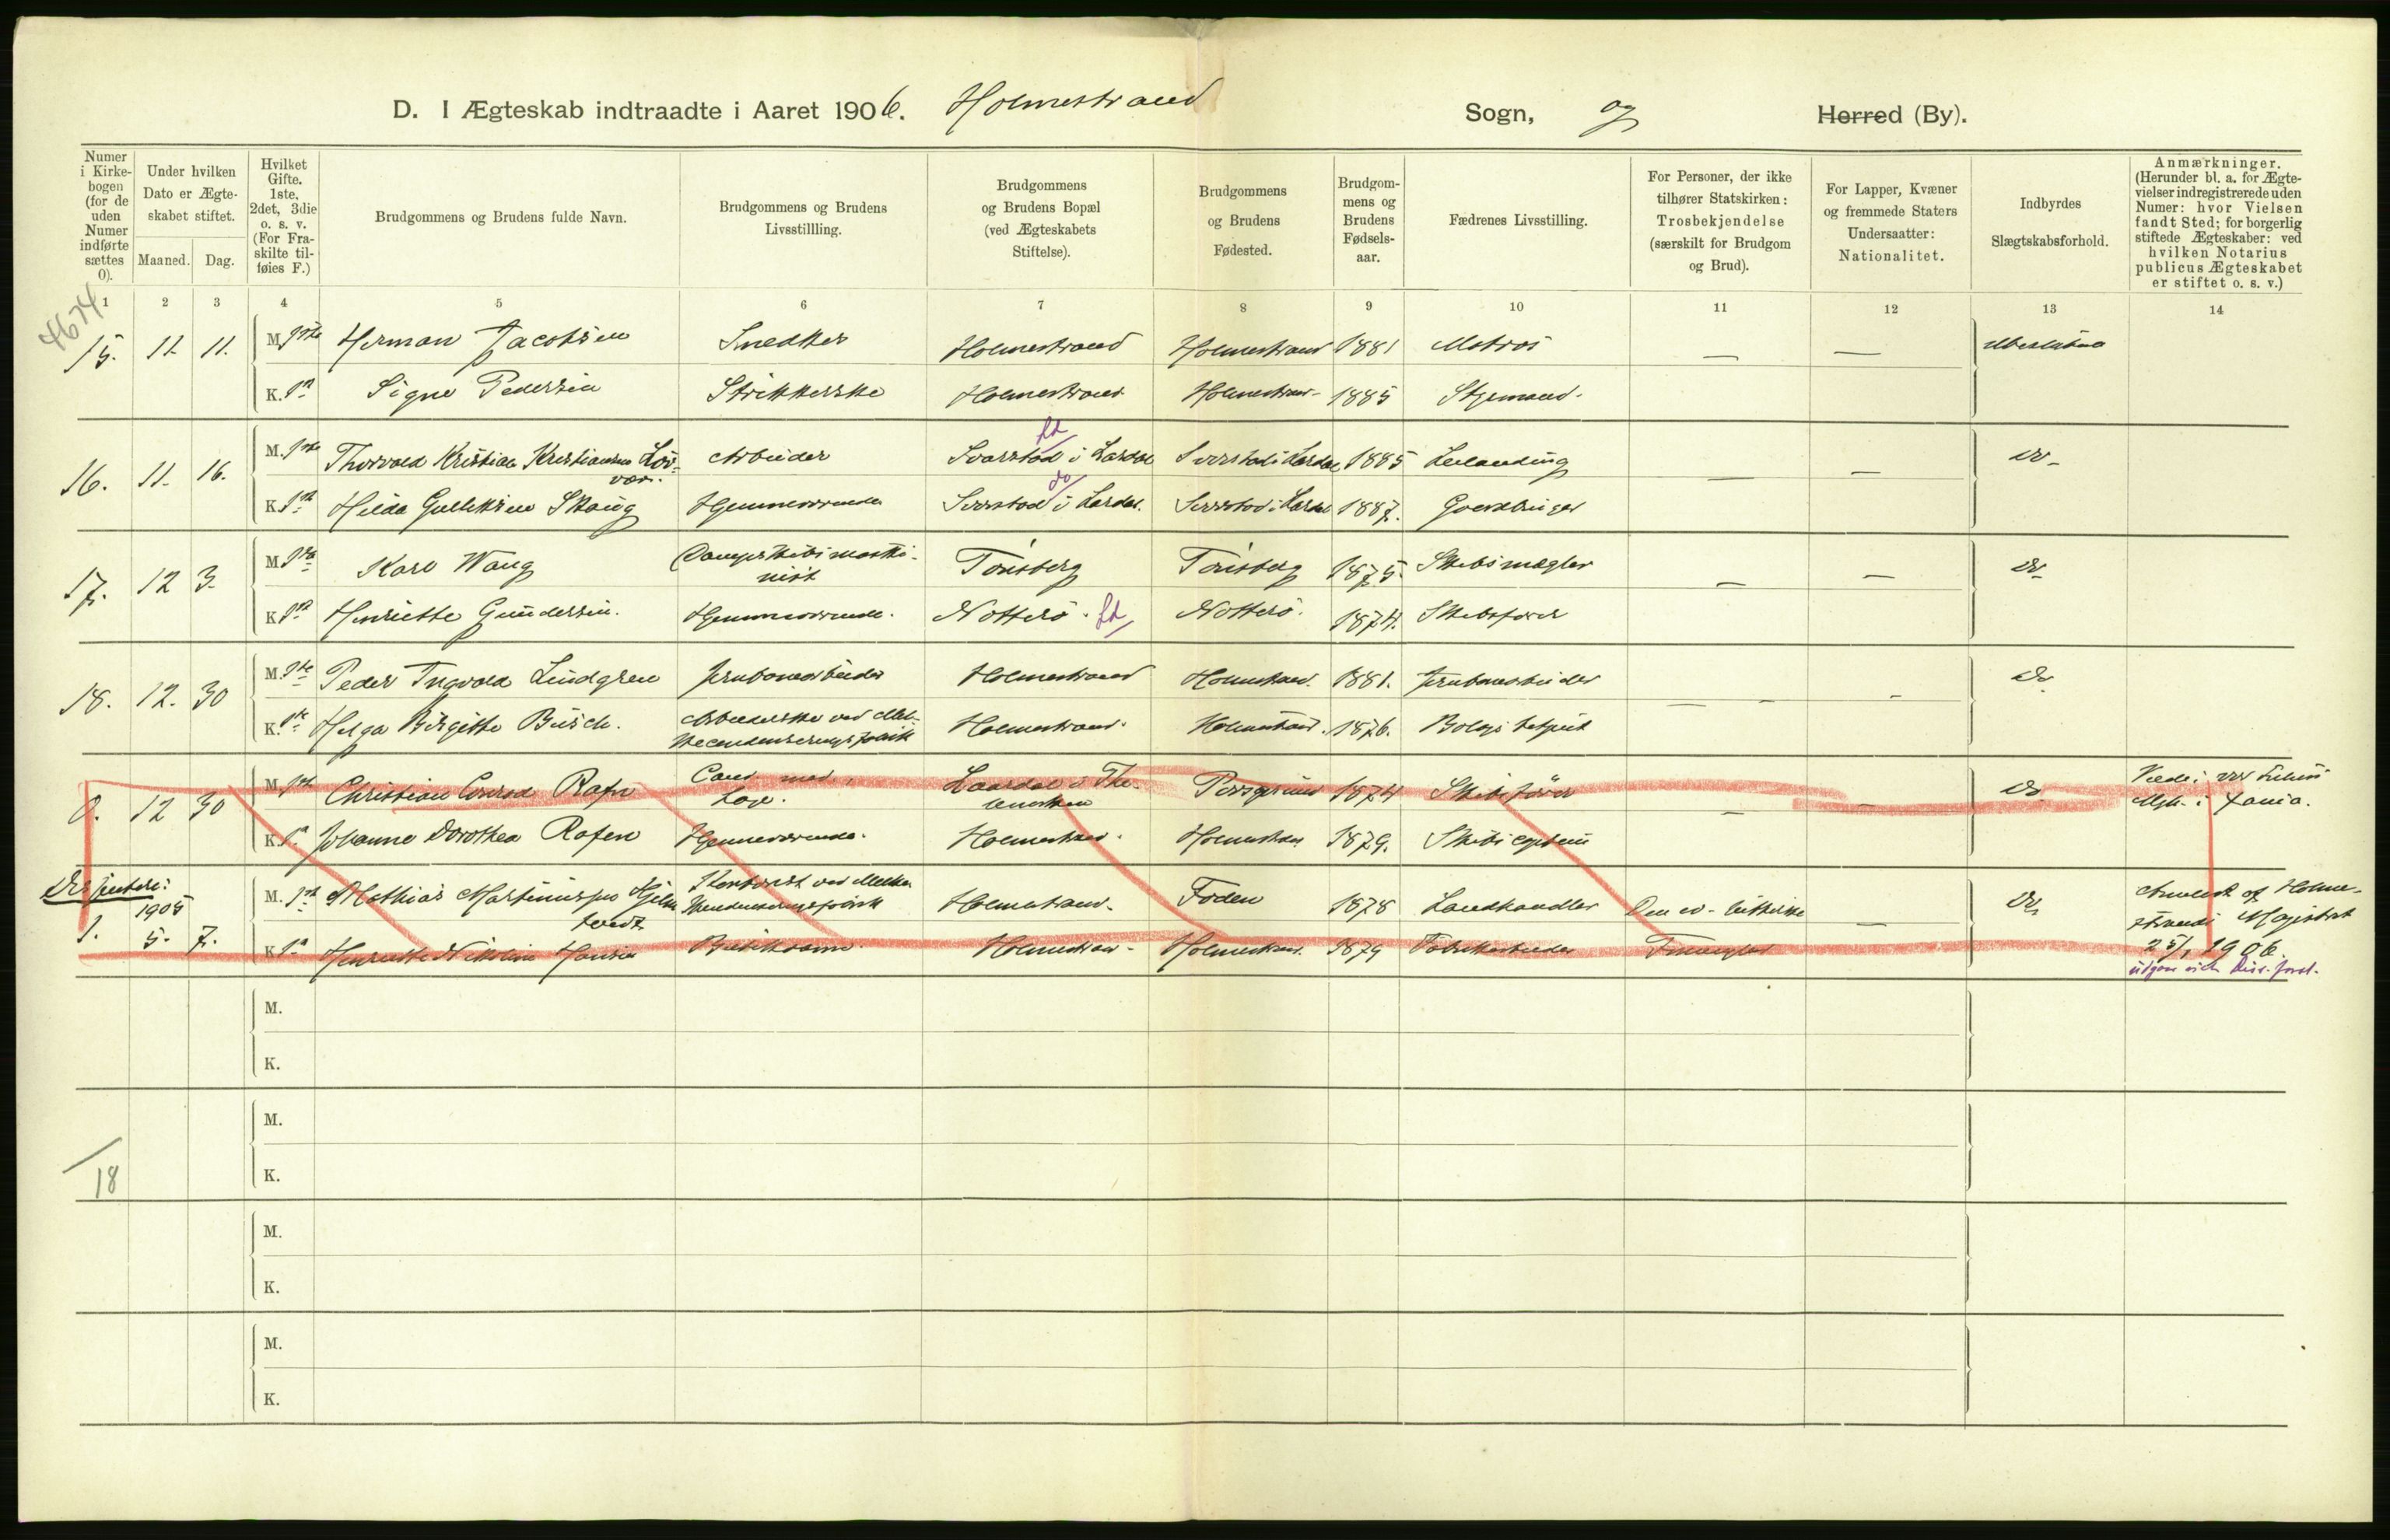 D. I Ægteskab indtraadte i Aaret 1906. Holmestrand Sogn, og Herred (By).
Numer i Kirke-bogen (for de uden Numer indførte sættes 0).
Under hvilken Dato er Ægte-skabet stiftet.
Maaned. Dag.
Hvilket Gifte. 1ste, 2det, 3die o. s. v. (For Fra-skilte til-føies F.)
Brudgommens og Brudens fulde Navn.
Brudgommens og Brudens Livsstillling.
Brudgommens og Brudens Bopæl (ved Ægteskabets Stiftelse).
Brudgommens og Brudens Fødested.
Brudgom-mens og Brudens Fødsels-aar.
Fædrenes Livsstilling.
For Personer, der ikke tilhører Statskirken: Trosbekjendelse (særskilt for Brudgom og Brud).
For Lapper, Kvæner og fremmede Staters Undersaatter: Nationalitet.
Indbyrdes Slægtskabsforhold.
Anmærkninger. (Herunder bl. a. for Ægte-vielser indregistrerede uden Numer: hvor Vielsen fandt Sted; for borgerlig stiftede Ægteskaber: ved hvilken Notarius publicus Ægteskabet er stiftet o. s. v.)
1 2 3 4 5 6 7 8 9 10 11 12 13 14
4674
15. 11. 11. M. 1ste Herman Jacobsen Snedker Holmestrand Holmestrand 1881 Matros — — Ubeslægtet
K. 1ste Signe Pedersen Strikkerske Holmestrand Holmestrand 1885 Styrmand.
16. 11. 16. M. 1ste Thorvald Kristian Kristiansen Løv- Arbeider Svarstad i Lardal Svarstad i Lardal 1885 Leilænding — — do
K. 1ste Hilda Gulliksen Skaug Hjemmeværende Svarstad i Lardal. Svarstad i Lardal 1887. Gaardbruger
17. 12 3. M. 1ste Karl Wang Dampskibsmaski-
nist Tønsberg Tønsberg 1875. Skibsmægler — — do
K. 1ste Henriette Gundersen. Hjemmeværende. Nøtterø. Ld Nøtterø. 1874. Skibsfører
18. 12. 30 M. 1ste Peder Ingvald Lindgren Jernbanearbeider Holmestrand Holmestrand. 1881. Jernbanearbeider — — do
K. 1ste Helga Birgitte Busch. Arbeiderske ved Mel-
kecondenseringsfabrik Holmestrand. Holmestrand. 1876.
0. 12 30 M. 1ste Christian Conrad Rafn Cand. med.,
Læge. Laardal i The-
lemarken Porsgrund 1874 Skibsfører — — do
K. 1ste Johanne Dorothea Rafen Hjemmeværende. Holmestrand. Holmestrand 1879. Skibscaptein
Dissentere:
1905
1. 5. 7. M. 1ste Mathias Martinussen Holmestrand. 1878 Landhandler Den ev.-lutherske — do
K. 1ste Henriette Nikoline Hansen Holmestrand. Holmestrand. 1879 Fabrikarbeider
Anmeldt af Holme-
strands Magistrat
25/1 1906.
M.
K.
M.
K.
18
M.
K.
M.
K.